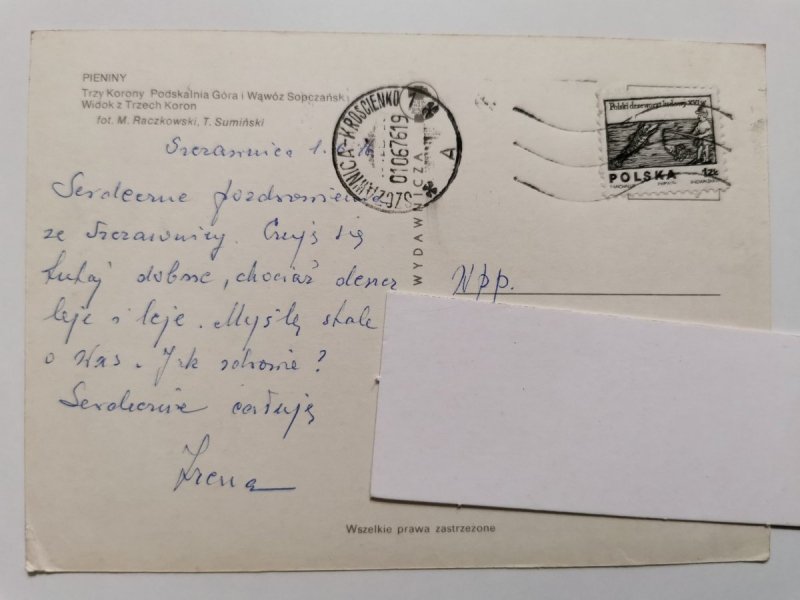 PIENINY
Trzy Korony Podskalnia Góra i Wąwóz Sopczański
Widok z Trzech Koron
fot. M. Raczkowski, T. Sumiński
Szczawnica 1.6.76
Serdeczne pozdrowienia
ze Szczawnicy. Czuję się
tutaj dobrze, chociaż deszcz
leje i leje. Myślę stale
o Was. Jak zdrowie?
Serdecznie całuję
Irena
SZCZAWNICA-KROŚCIENKO 1
01067619
A
WYDAWNICZA
POLSKA
1ZŁ
Wpp.
Wszelkie prawa zastrzeżone